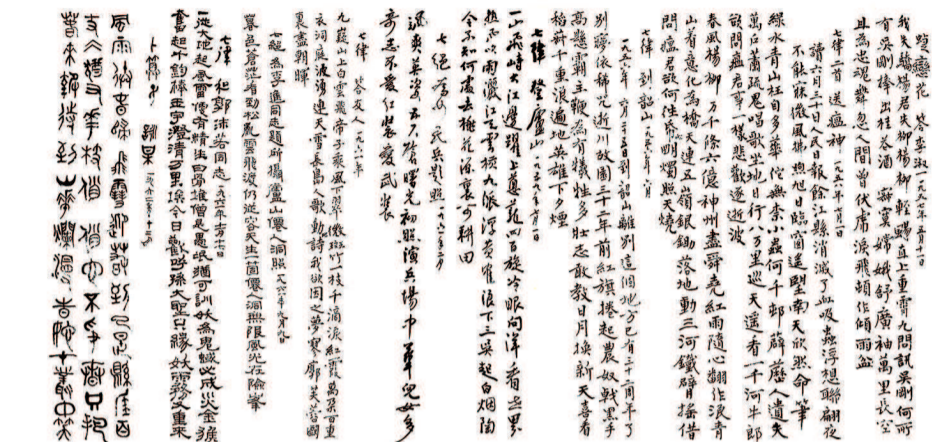 蝶戀花 答李淑一 一九五七年五月十一日
我失驕楊君失柳楊柳輕颺直上重霄九問訊吳剛何所
有吳剛捧出桂花酒 寂寞嫦娥舒廣袖萬里長空
且為忠魂舞忽報人間曾伏虎淚飛頓作傾雨盆
七律二首 送瘟神 一九五八年七月一日
讀六月三十日人民日報餘江縣消滅了血吸蟲浮想聯翩夜
不能寐微風拂煦旭日臨窗遙望南天欣然命筆
綠水青山枉自多華佗無奈小蟲何千村薜藶人遺矢
萬戶蕭疏鬼唱歌坐地日行八萬里巡天遙看一千河牛郎
欲問瘟神事一樣悲歡逐逝波
春風楊柳萬千條六億神州盡舜堯紅雨隨心翻作浪青
山着意化為橋天連五嶺銀鋤落地動三河鐵臂搖借
問瘟君欲何往紙船明燭照天燒
七律 到韶山 一九五九年六月
一九五九年六月二十五日到韶山離別這個地方已有三十二周年了
別夢依稀咒逝川故園三十二年前紅旗捲起農奴戟黑手
高懸霸主鞭為有犧牲多壯志敢教日月換新天喜看
稻菽千重浪遍地英雄下夕煙
七律 登廬山 一九五九年七月一日
一山飛峙大江邊躍上蔥蘢四百旋冷眼向洋看世界
熱風吹雨灑江天雲橫九派浮黃鶴浪下三吳起白烟陶
令不知何處去桃花源裏可耕田
七絕 為女民兵題照 一九六一年二月
颯爽英姿五尺槍曙光初照演兵場中華兒女多
奇志不愛紅裝愛武裝
七律 答友人 一九六一年
九嶷山上白雲飛帝子乘風下翠微斑竹一枝千滴淚紅霞萬朵百重
衣洞庭波湧連天雪長島人歌動地詩我欲因之夢寥廓芙蓉國
裏盡朝暉
七絕 為李進同志題所攝廬山仙人洞照 一九六一年九月九日
暮色蒼茫看勁松亂雲飛渡仍從容天生一個仙人洞無限風光在險峯
七律 和郭沫若同志 一九六一年十一月十七日
一從大地起風雷便有精生白骨堆僧是愚氓猶可訓妖為鬼蜮必成災金猴
奮起千鈞棒玉宇澄清萬里埃今日歡呼孫大聖只緣妖霧又重來
卜算子 詠梅 一九六一年十二月
風雨送春歸飛雪迎春到已是懸崖百
丈冰猶有花枝俏俏也不爭春只把
春來報待到山花爛漫時她在叢中笑